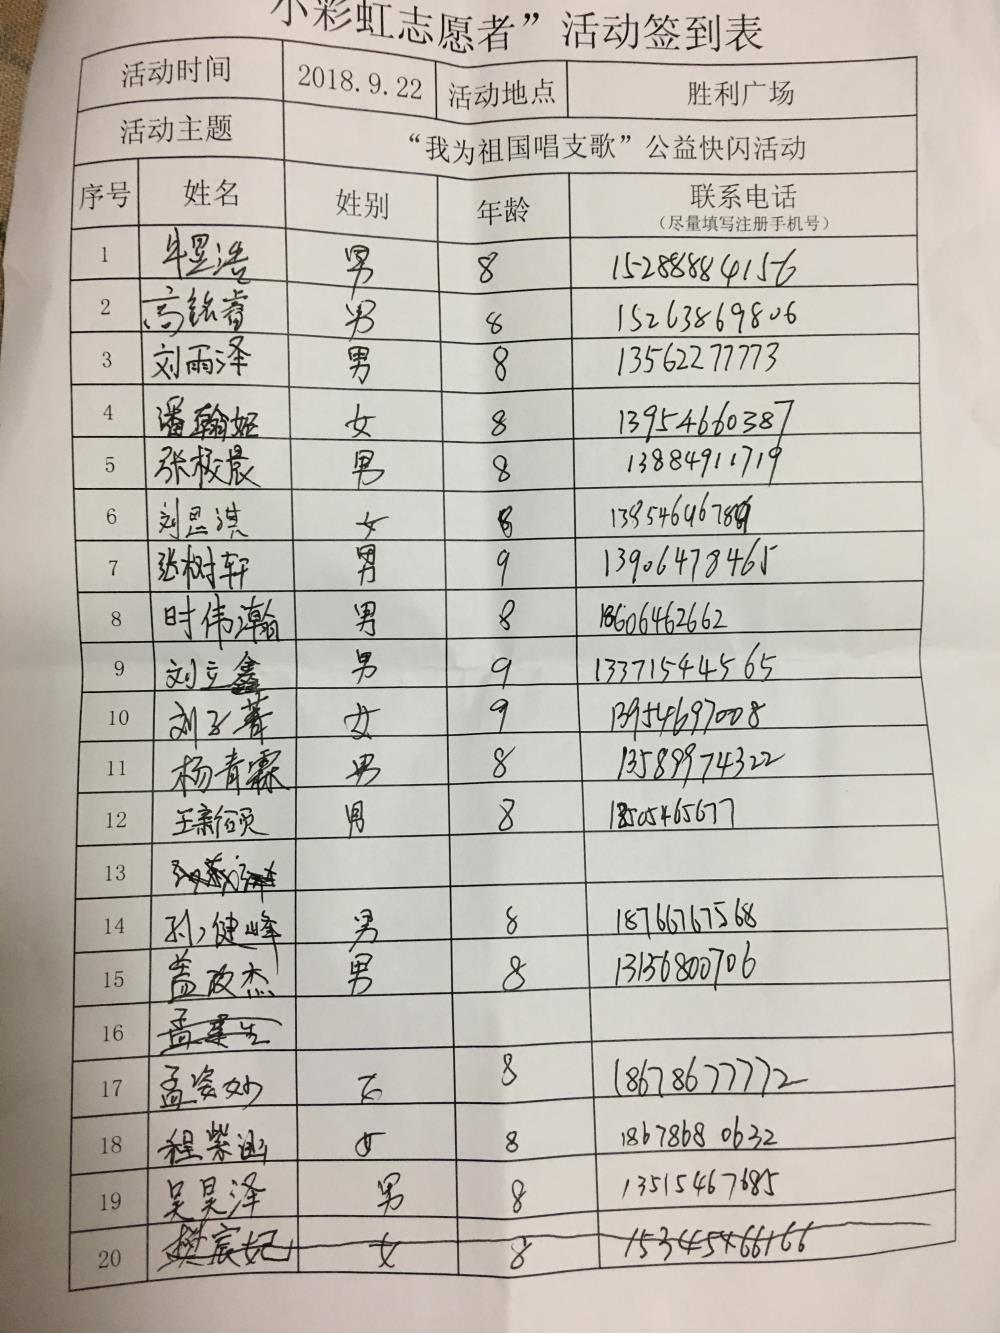 小彩虹志愿者”活动签到表
活动时间 2018.9.22 活动地点 胜利广场
活动主题 “我为祖国唱支歌”公益快闪活动
序号 姓名 性别 年龄 联系电话
(尽量填写注册手机号)
1 牛昱浩 男 8 15288884156
2 高铭睿 男 8 15263869806
3 刘雨泽 男 8 13562277773
4 潘翰妮 女 8 13954660387
5 张校晨 男 8 13884911719
6 刘思淇 女 8
7 张树轩 男 9 13906478465
8 时伟瀚 男 8 18606462662
9 刘立鑫 男 9 13371544565
10 刘子菁 女 9 13954697008
11 杨青霖 男 8 13589974322
12 王新硕 男 8 18505465677
13
14 孙健峰 男 8 18766767568
15 盖政杰 男 8 13156800706
16
17 孟姿妙 女 8 18678677772
18 程紫涵 女 8 18678680632
19 吴昊泽 男 8 13515467685
20 樊宸妃 女 8 15345466166